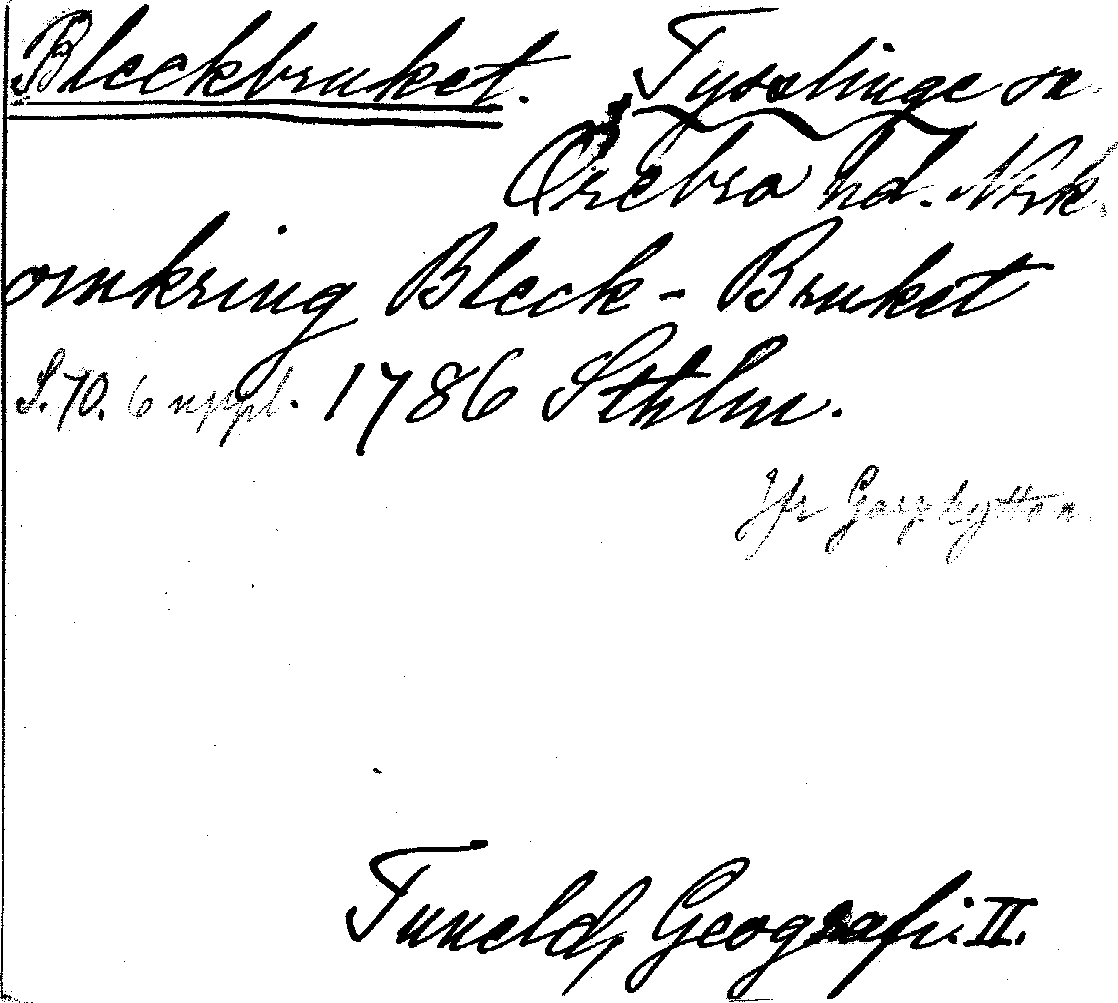 Bleckbruket. Tysslinge sn.
Örebro hd. Nrk.
omkring Bleck-Bruket
S. 70. 6 uppl. 1786 Sthlm.
Jfr Garphyttan.
Tuneld, Geografi. II.